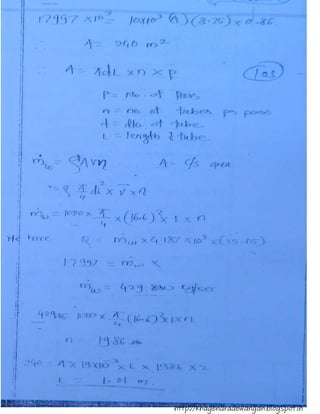 17997 × 10³ = 10×10³ (A) (8.75) × 0.86
∴ A = 240 m²
∴ A = πdL × n × p
103
P = No. of Pass
n = no. of tubes per pass
d = dia. of tube
L = length of tube
ṁω = ρAVn A = c/s area
= ρ π/4 di² × v × n
ṁω = 1000 × π/4 × (16.6)² × 1 × n
We have Q = ṁω × 4.187 × 10³ × (25-15)
17997 = ṁω ×
ṁω = 429.830 kg/sec
1000 × π/4 (16.6)² × 1 × n
n = 1986
240 = π × 19×10⁻³ × L × 1986 × 2
L = 1.01 m.
http://khagendradewangan.blogspot.in